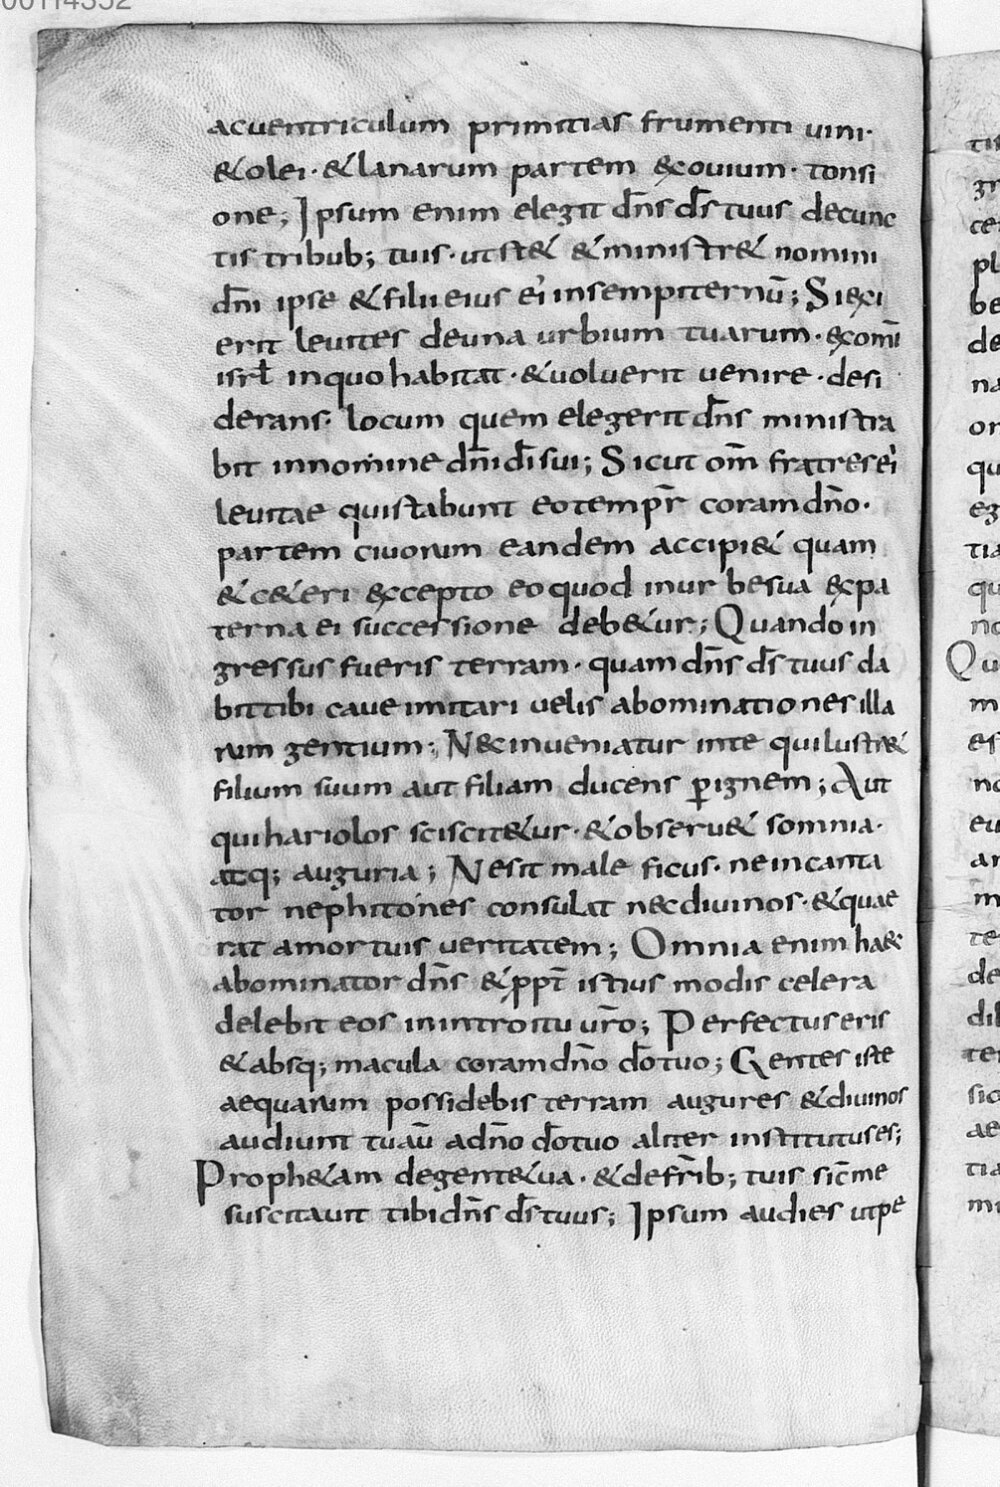 00114352
acuentriculum primitias frumenti uini·
&olei· &lanarum partem &couium· tonsi
one; Ipsum enim elegit dn̄s ds̄ tuus decunc
tis tribub; tuis· utst& &ministr& nomini
dn̄i ipse &filii eius ei insempiternū; Siexi
erit leuites deuna urbium tuarum· exomī
isrł inquo habitat· &uoluerit uenire· desi
derans· locum quem elegerit dn̄s ministra
bit innomine dn̄i dī sui; Sicut om̄ fratres ei
leuitae quistabunt eotempr̄ coram dn̄o·
partem ciuorum eandem accipi& quam
&c&eri excepto eo quod inur besua expa
terna ei successione deb&ur; Quando in
gressus fueris terram· quam dn̄s ds̄ tuus da
bit tibi caue imitari uelis abominationes illa
rum gentium; Nec inueniatur inte qui lustr&
filium suum aut filiam ducens p̄ ignem; Aut
qui hariolos sciscit&ur· &obseru& somnia·
atq; auguria; Nesit maleficus· ne incanta
tor ne phitones consulat nec diuinos· &quae
rat amortuis ueritatem; Omnia enim haec
abominator dn̄s &ppt̄ istius modi scelera
delebit eos inintroitu ur̄o; Perfectus eris
&absq; macula coram dn̄o dō tuo; Gentes iste
aequarum possidebis terram augures &diuinos
audiunt tu aū adn̄o dō tuo aliter institutus es;
Proph&am degente tua· &defrīb; tuis sic̄ me
suscitauit tibi dn̄s ds̄ tuus; Ipsum audies utpe